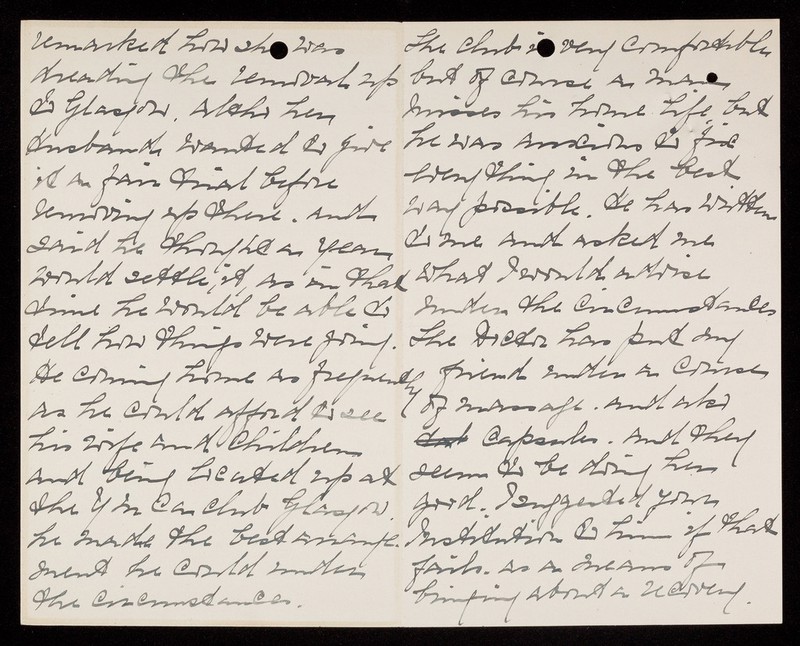 remarked how she was
dreading the removal up
to Glasgow. altho her
Husband wanted to give
it a fair trial before
removing up there. and
said he thought a year
would settle it, as in that
time he would be able to
tell how things were going.
He coming home as frequently
as he could afford to see
his wife and Children
and being located up at
the Y M C a club Glasgow.
he made the best arrange-
ment he could under
the circumstances.
The club is very comfortable
but of course a man
misses his home life, but
he was anxious to fix
everything in the best
way possible. He has written
to me and asked me
what I would advise
under the circumstances
The Doctor has put my
friend under a course
of massage. and also
capsules. and they
seem to be doing her
good. I suggested your
Institution to him if that
fails. as a means of
bringing about a recovery.